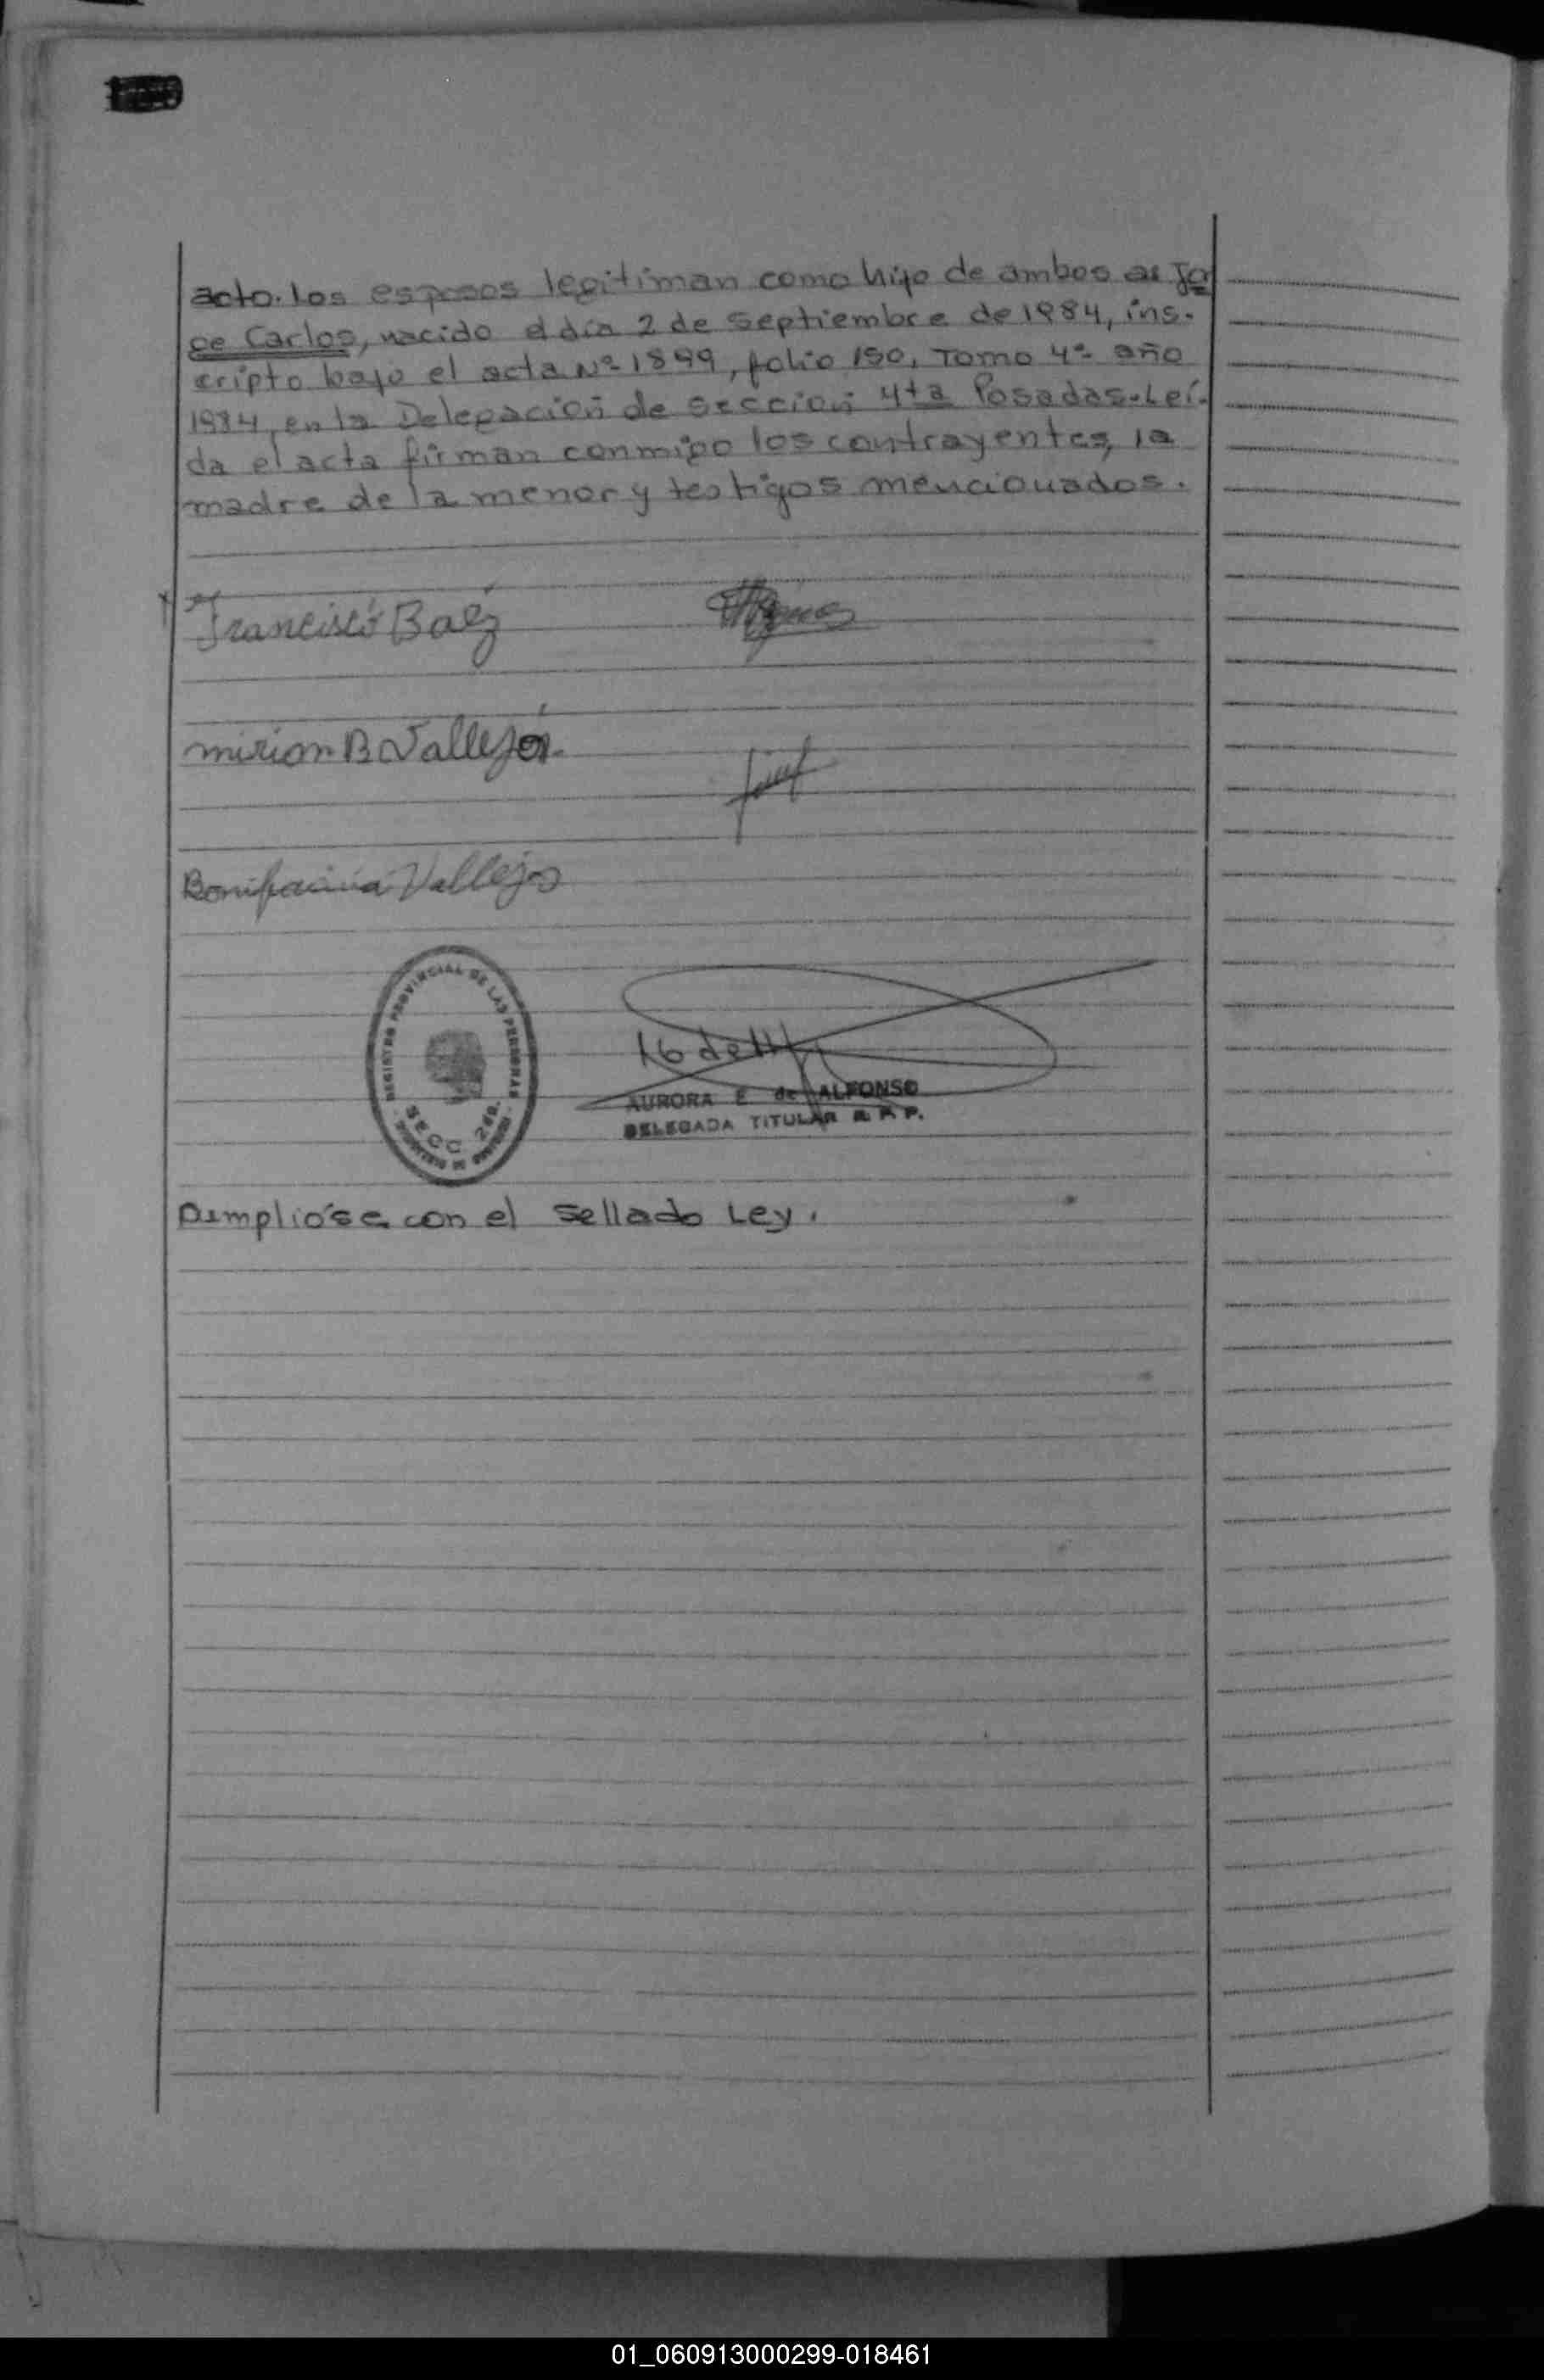 acto. los esposos legitiman como hijo de ambos a: Jo
se Carlos, nacido el día 2 de Septiembre de 1984, ins-
cripto bajo el acta Nº 1899, folio 150, Tomo 4º año
1984, en la Delegación de Sección 4ta Posadas. Leí-
da el acta firman conmigo los contrayentes, la
madre de la menor y testigos mencionados.
Francisco Baéz
mirian B Vallejos
Bonifacia Vallejos
REGISTRO PROVINCIAL DE LAS PERSONAS
SECC 2da.
AURORA E de ALFONSO
DELEGADA TITULAR R P P.
Cumplióse con el Sellado Ley.
01_060913000299-018461